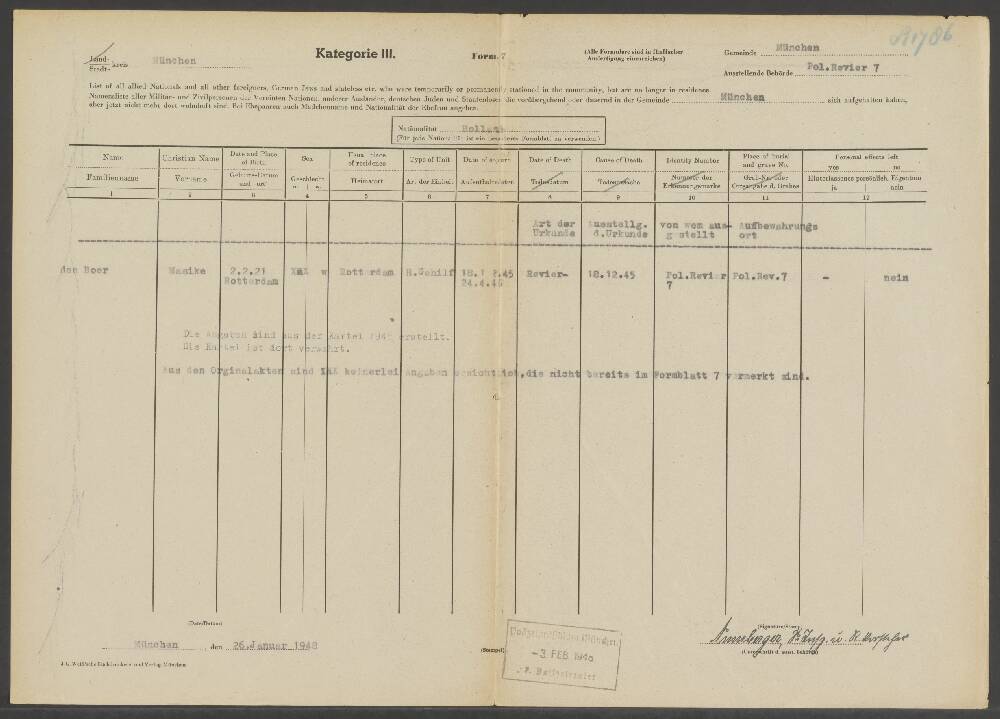 A1786
Kategorie III.
Form. 7
(Alle Formulare sind in 3facher
Ausfertigung einzureichen)
Gemeinde München
Land-
Stadt- kreis München
Ausstellende Behörde Pol.Revier 7
List of all allied Nationals and all other foreigners, German Jews and stateless etc. who were temporarily or permanently stationed in the community, but are no longer in residence.
Namensliste aller Militär- und Zivilpersonen der Vereinten Nationen, anderer Ausländer, deutschen Juden und Staatenlosen, die vorübergehend oder dauernd in der Gemeinde München sich aufgehalten haben,
aber jetzt nicht mehr dort wohnhaft sind. Bei Ehepaaren auch Mädchenname und Nationalität der Ehefrau angeben.
Nationalität Holland
(Für jede Nationalität ist ein besonderes Formblatt zu verwenden)
Name Christian Name Date and Place of Birth Sex Usual place of residence Type of Unit Date of sojourn Date of Death Cause of Death Identity Number Place of burial and grave No. Personal effects left yes no
Familienname Vorname Geburts-Datum und -ort Geschlecht m. w. Heimatort Art der Einheit Aufenthaltsdaten Todesdatum Todesursache Nummer der Erkennungsmarke Grab-Nr. oder Ortsangabe d. Grabes Hinterlassenes persönlich. Eigentum ja nein
1 2 3 4 5 6 7 8 9 10 11 12
Art der Ausstellg. von wem aus- Aufbewahrungs
Urkunde d.Urkunde gestellt ort
den Boer Maaike 2.2.21 XXX w Rotterdam H.Gehilf 18.12.45 Revier- 18.12.45 Pol.Revier Pol.Rev.7 - nein
Rotterdam 24.4.46 7
Die Angaben sind aus der Kartei 1945 erstellt.
Die Kartei ist dort verwahrt.
Aus den Orginalakten sind XXX keinerlei Angaben ersichtlich,die nicht bereits im Formblatt 7 vermerkt sind.
(Date/Datum)
München , den 26.Januar 1948
(Stempel)
Polizeipräsidium München
-3. FEB. 1948
(Signature/Sign.)
(Unterschrift d. ausst. Behörde)
J. G. Weiß'sche Buchdruckerei und Verlag München